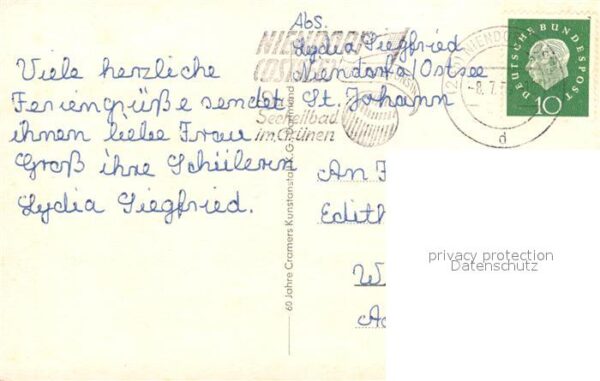 Viele herzliche
Feriengrüße sendet
ihnen liebe Frau
Groß ihre Schülerin
Lydia Siegfried.
Abs.
Lydia Siegfried
Niendorf/Ostsee
St. Johann
NIENDORF
OSTSEE
Seeheilbad
im Grünen
NIENDORF
-8.7.
d
DEUTSCHE BUNDESPOST
10
60 Jahre Cramers Kunstanstalt
An F
Edith
W
privacy protection
Datenschutz